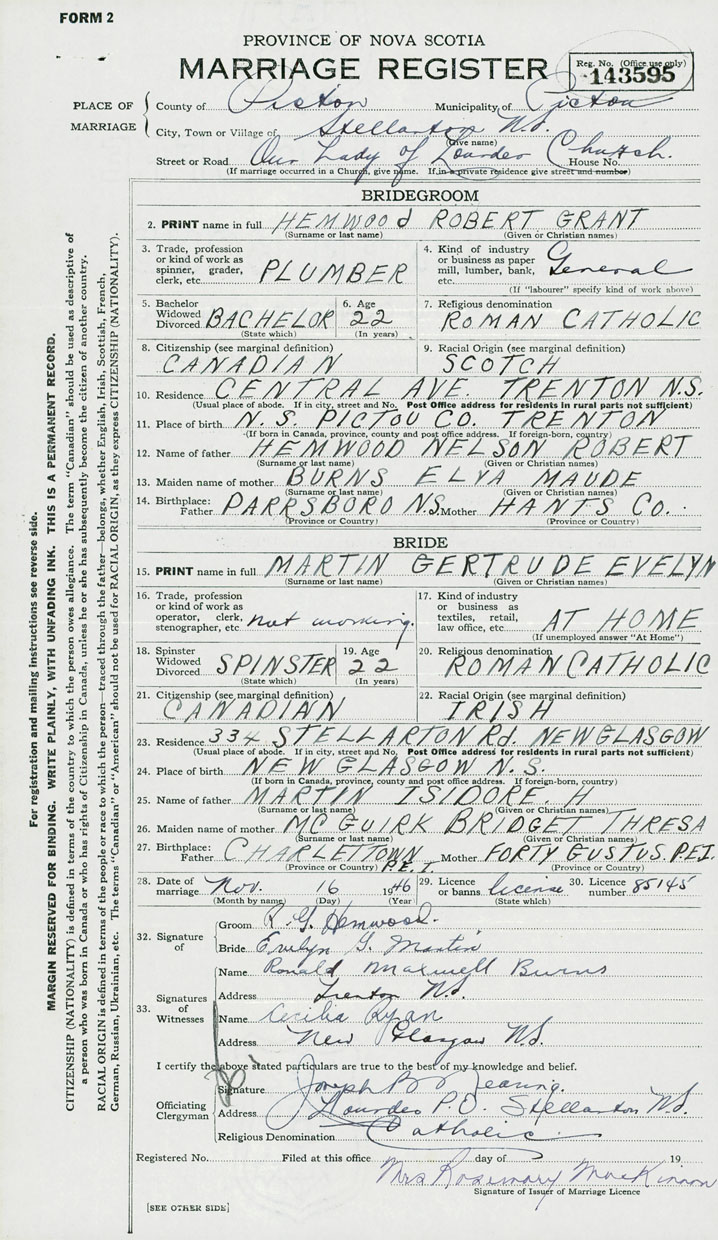 FORM 2
PROVINCE OF NOVA SCOTIA
MARRIAGE REGISTER
Reg. No. (Office use only)
143595
PLACE OF MARRIAGE
County of Pictou Municipality of Pictou
City, Town or Village of Stellarton N.S.
(Give name)
Street or Road Our Lady of Lourdes Church. House No.
(If marriage occurred in a Church, give name. If in a private residence give street and number)
BRIDEGROOM
2. PRINT name in full HEMWOOD ROBERT GRANT
(Surname or last name) (Given or Christian names)
3. Trade, profession or kind of work as spinner, grader, clerk, etc. PLUMBER
4. Kind of industry or business as paper mill, lumber, bank, etc. General
(If "labourer" specify kind of work above)
5. Bachelor Widowed Divorced BACHELOR
(State which)
6. Age 22
(In years)
7. Religious denomination
ROMAN CATHOLIC
8. Citizenship (see marginal definition)
CANADIAN
9. Racial Origin (see marginal definition)
SCOTCH
10. Residence CENTRAL AVE. TRENTON N.S.
(Usual place of abode. If in city, street and No. Post Office address for residents in rural parts not sufficient)
11. Place of birth N.S. PICTOU CO. TRENTON
(If born in Canada, province, county and post office address. If foreign-born, country)
12. Name of father HEMWOOD NELSON ROBERT
(Surname or last name) (Given or Christian names)
13. Maiden name of mother BURNS ELVA MAUDE
(Surname or last name) (Given or Christian names)
14. Birthplace: Father PARRSBORO N.S. Mother HANTS CO.
(Province or Country) (Province or Country)
BRIDE
15. PRINT name in full MARTIN GERTRUDE EVELYN
(Surname or last name) (Given or Christian names)
16. Trade, profession or kind of work as operator, clerk, stenographer, etc. not working.
17. Kind of industry or business as textiles, retail, law office, etc. AT HOME
(If unemployed answer "At Home")
18. Spinster Widowed Divorced SPINSTER
(State which)
19. Age 22
(In years)
20. Religious denomination
ROMAN CATHOLIC
21. Citizenship (see marginal definition)
CANADIAN
22. Racial Origin (see marginal definition)
IRISH
23. Residence 334 STELLARTON Rd. NEW GLASGOW
(Usual place of abode. If in city, street and No. Post Office address for residents in rural parts not sufficient)
24. Place of birth NEW GLASGOW N.S.
(If born in Canada, province, county and post office address. If foreign-born, country)
25. Name of father MARTIN ISIDORE. H
(Surname or last name) (Given or Christian names)
26. Maiden name of mother MCGUIRK BRIDGET THRESA
(Surname or last name) (Given or Christian names)
27. Birthplace: Father CHARLETTOWN P.E.I. Mother FORTY GUSTUS. P.E.I.
(Province or Country) (Province or Country)
28. Date of marriage Nov. 16 1946
(Month by name) (Day) (Year)
29. Licence or banns license
(State which)
30. Licence number 85145
32. Signature of
Groom R. G. Hemwood.
Bride Evelyn G. Martin
33. Signatures of Witnesses
Name Ronald Maxwell Burns
Address Trenton N.S.
Name Cecilia Ryan
Address New Glasgow N.S.
I certify the above stated particulars are true to the best of my knowledge and belief.
Officiating Clergyman
Signature Joseph B Nearing.
Address Lourdes P.O. Stellarton N.S.
Religious Denomination Catholic
Registered No. Filed at this office day of 19
Mrs Rosemary MacKinnon
Signature of Issuer of Marriage Licence
[SEE OTHER SIDE]
For registration and mailing instructions see reverse side.
MARGIN RESERVED FOR BINDING. WRITE PLAINLY, WITH UNFADING INK. THIS IS A PERMANENT RECORD.
CITIZENSHIP (NATIONALITY) is defined in terms of the country to which the person owes allegiance. The term "Canadian" should be used as descriptive of
a person who was born in Canada or who has rights of Citizenship in Canada, unless he or she has subsequently become the citizen of another country.
RACIAL ORIGIN is defined in terms of the people or race to which the person—traced through the father—belongs, whether English, Irish, Scottish, French,
German, Russian, Ukrainian, etc. The terms "Canadian" or "American" should not be used for RACIAL ORIGIN, as they express CITIZENSHIP (NATIONALITY).